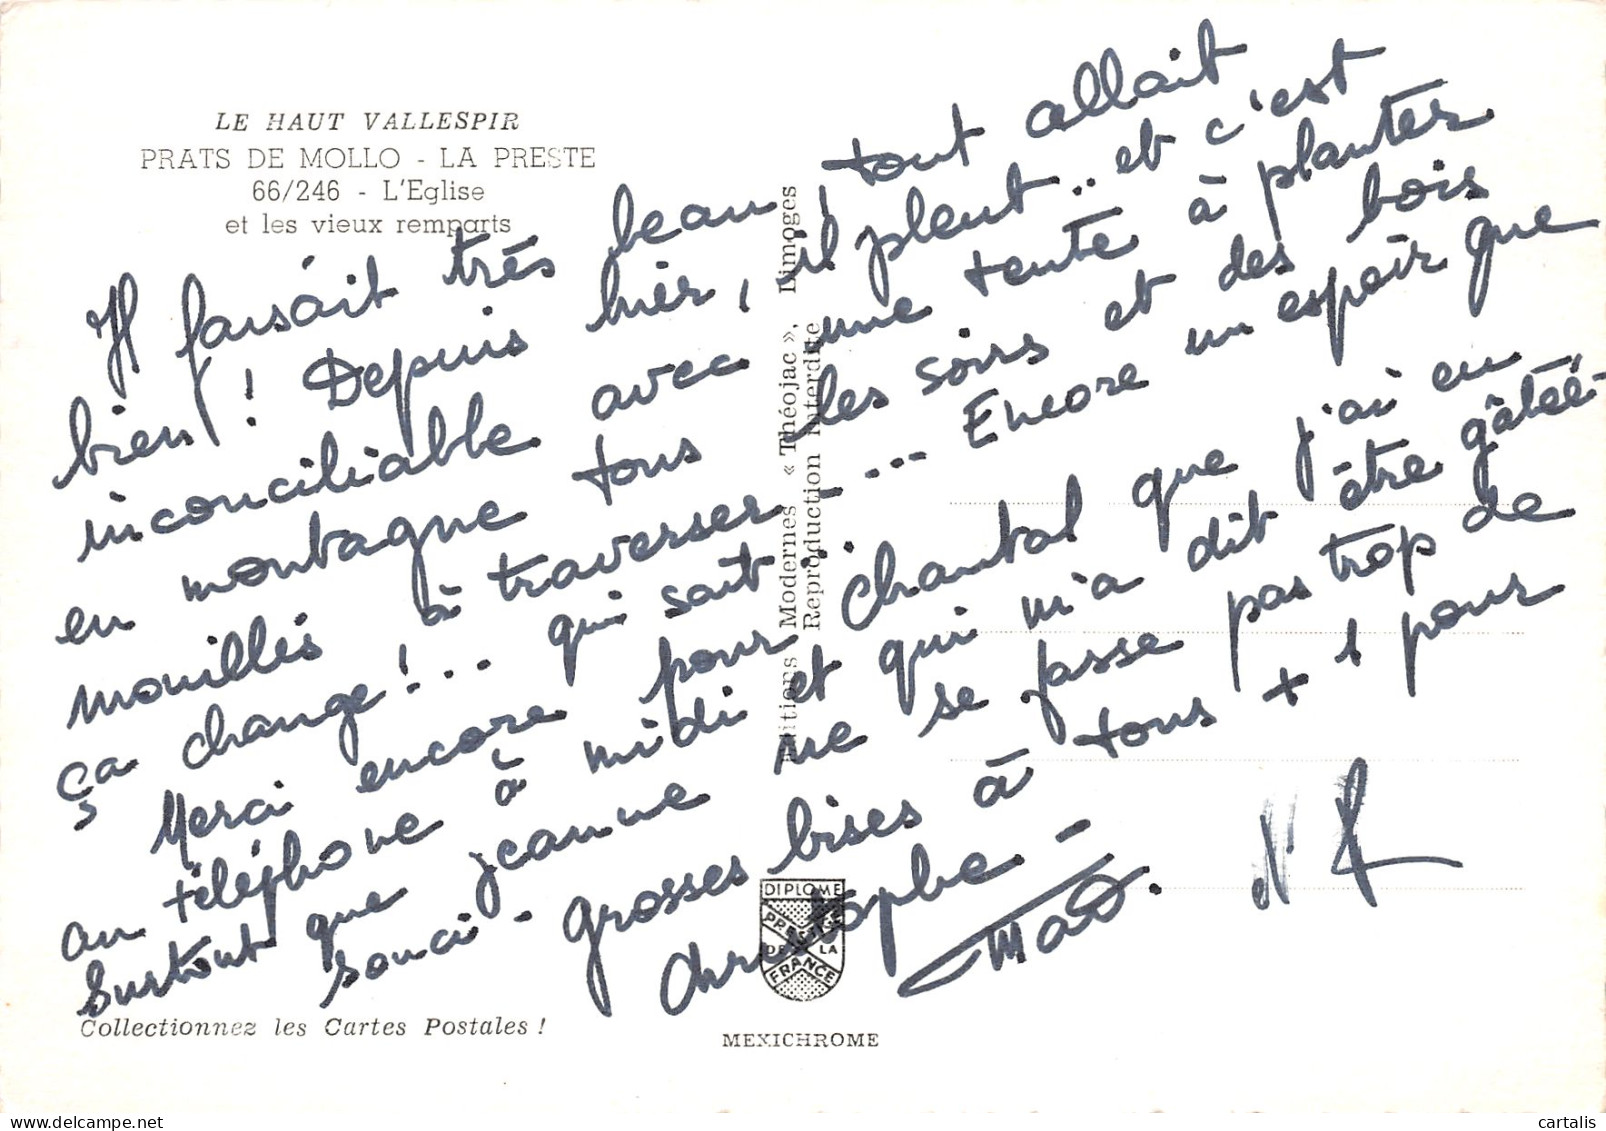 LE HAUT VALLESPIR
PRATS DE MOLLO - LA PRESTE
66/246 - L'Eglise
et les vieux remparts
Il faisait très beau, tout allait
bien ! Depuis hier, il pleut.. et c'est
inconciliable avec une tente à planter
en montagne tous les soirs et des bois
mouillés à traverser.... Encore un espoir que
ça change !... qui sait...
Merci encore pour Chantal que j'ai eu
au téléphone à midi et qui m'a dit être gâtée -
Surtout que Jeanne ne se fasse pas trop de
souci - grosses bises à tous + 1 pour
Christophe -
Collectionnez les Cartes Postales !
Editions Modernes « Théojac », Limoges
Reproduction interdite
DIPLOME
PRESTIGE
DE LA
FRANCE
MEXICHROME
cartalis